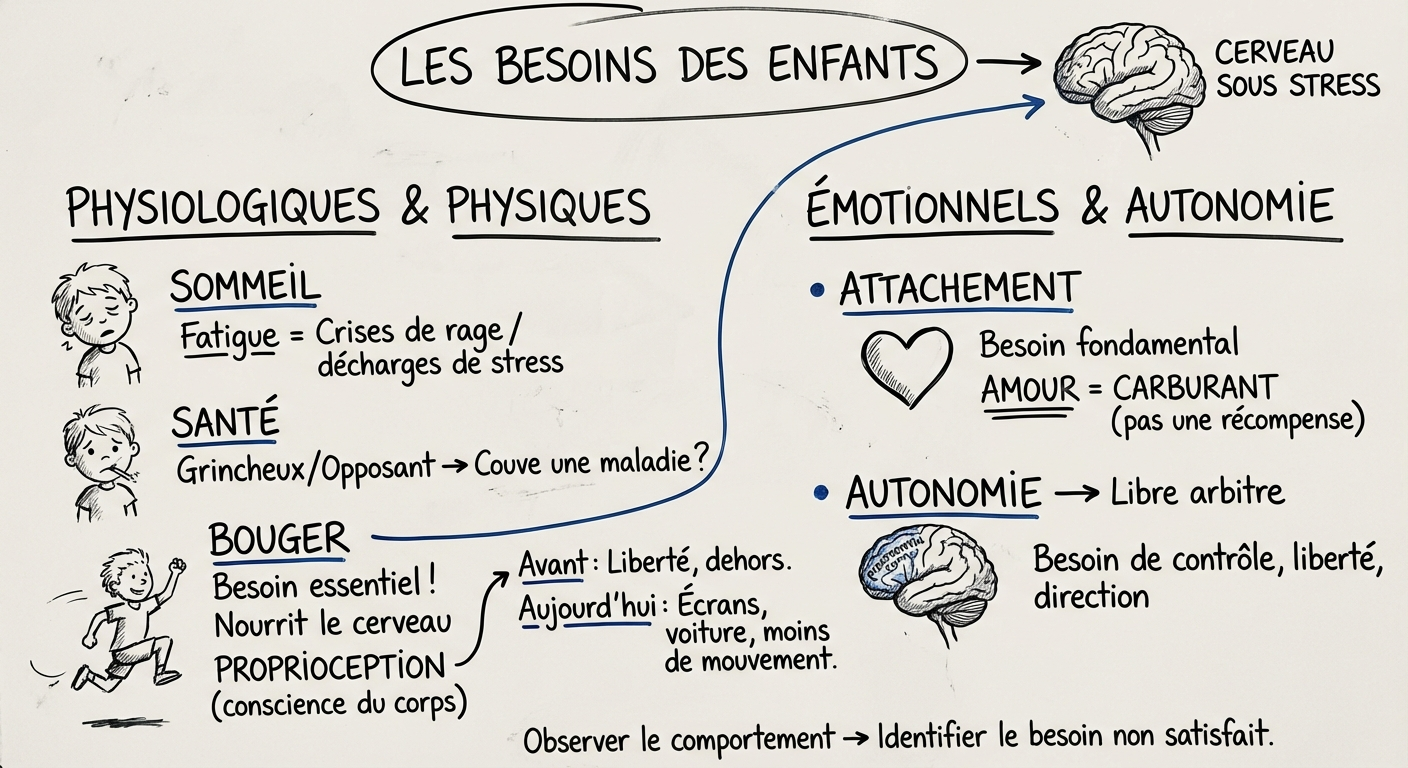 LES BESOINS DES ENFANTS →
CERVEAU
SOUS STRESS
PHYSIOLOGIQUES & PHYSIQUES
SOMMEIL
Fatigue = Crises de rage/
décharges de stress
z
SANTÉ
Grincheux/Opposant → Couve une maladie?
BOUGER
Besoin essentiel!
Nourrit le cerveau
PROPRIOCEPTION
(conscience du corps)
Avant: Liberté, dehors.
Aujourd'hui: Écrans,
voiture, moins
de mouvement.
ÉMOTIONNELS & AUTONOMIE
• ATTACHEMENT
Besoin fondamental
AMOUR = CARBURANT
(pas une récompense)
• AUTONOMIE → Libre arbitre
Besoin de contrôle, liberté,
direction
Observer le comportement → Identifier le besoin non satisfait.